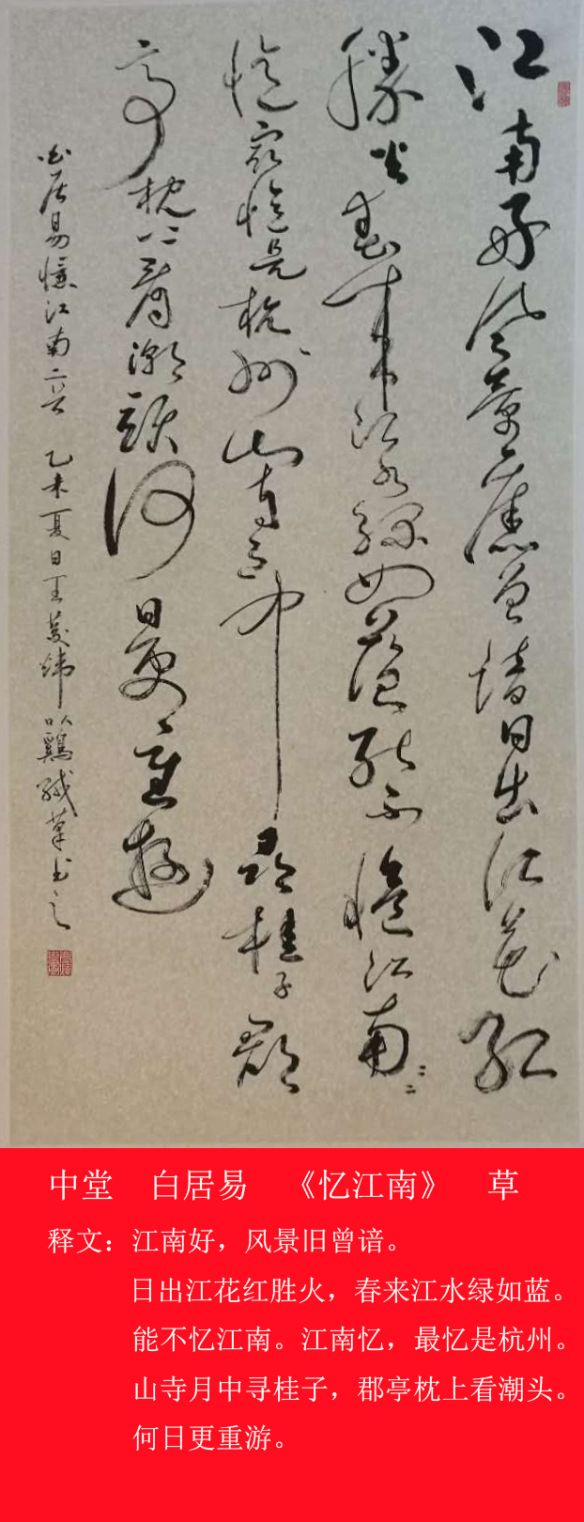 江南好風景舊曾諳日出江花紅
勝火春來江水綠如藍能不憶江南〻
憶最憶是杭州山寺月中尋桂子郡
亭枕上看潮頭何日更重遊
白居易憶江南二首 乙未夏日王 緯以鷄 草书之
中堂 白居易 《忆江南》 草
释文：江南好，风景旧曾谙。
日出江花红胜火，春来江水绿如蓝。
能不忆江南。江南忆，最忆是杭州。
山寺月中寻桂子，郡亭枕上看潮头。
何日更重游。